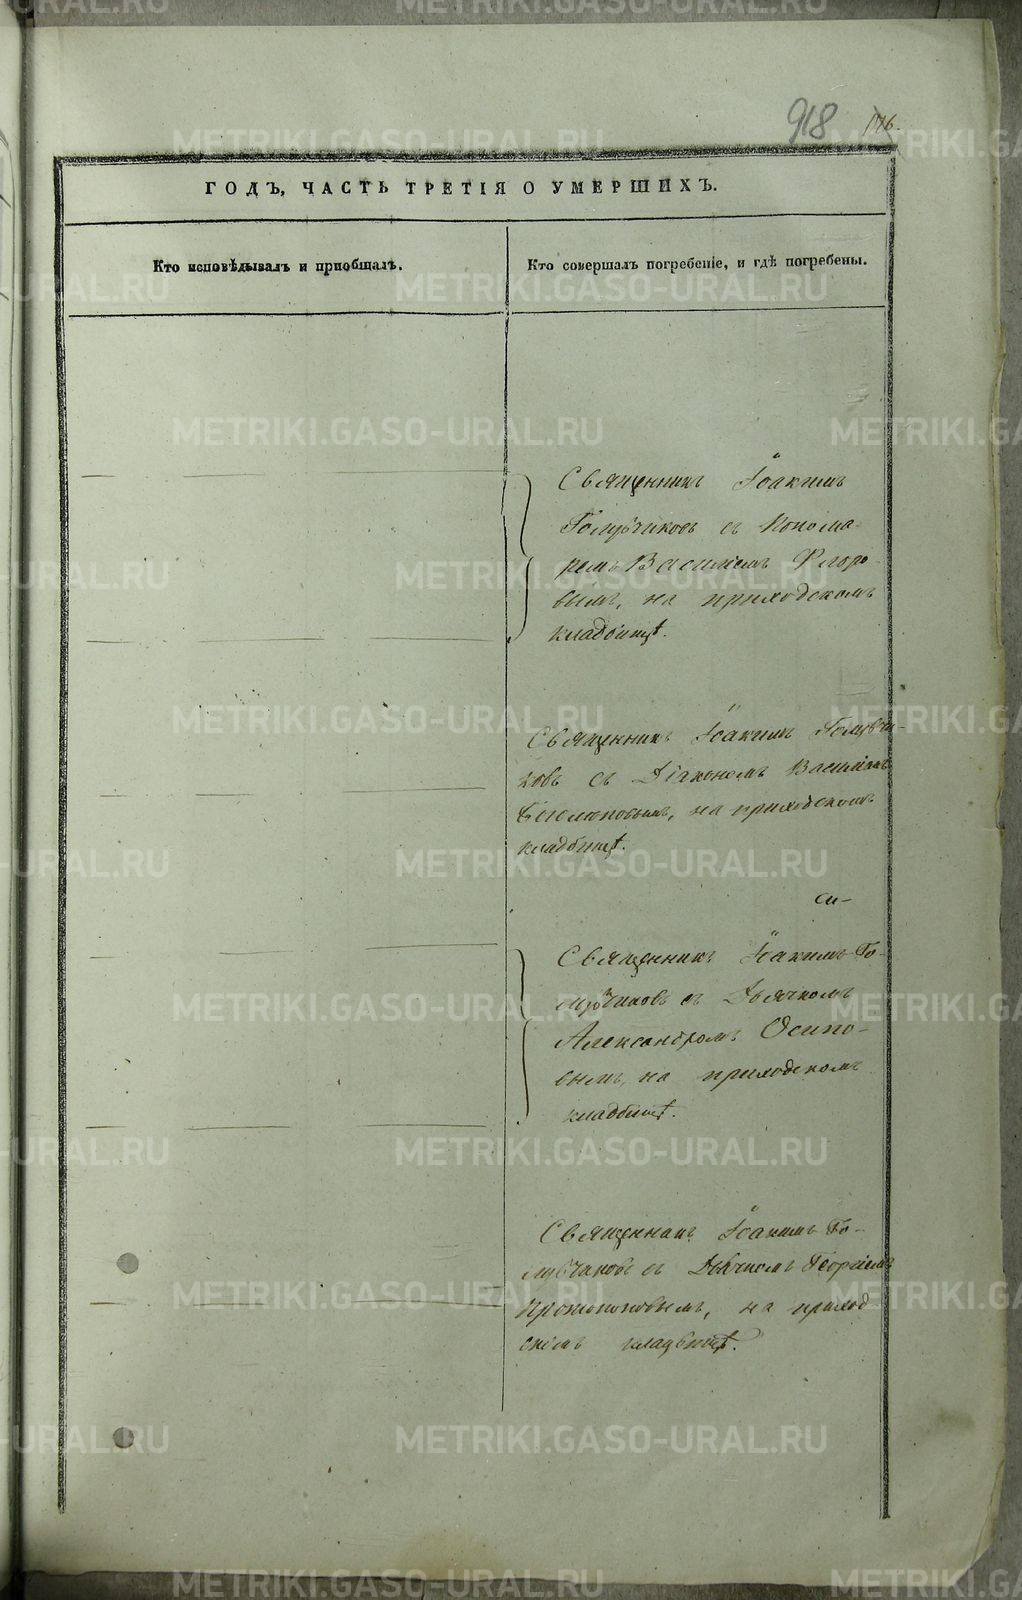 918 146.
ГОДЪ, ЧАСТЬ ТРЕТІЯ О УМЕРШИХЪ.
Кто исповѣдывалъ и пріобщалъ.
Кто совершалъ погребеніе, и гдѣ погребены.
Священникъ Іоакимъ
Голубчиковъ съ Понома-
ремъ Василіемъ Флоро-
вымъ, на приходскомъ
кладбищѣ.
Священникъ Іоакимъ Голубчи-
ковъ съ Діакономъ Василіемъ
на приходскомъ
кладбищѣ.
си-
Священникъ Іоакимъ Го-
лубчиковъ съ Дьячкомъ
Александромъ Осипо-
вымъ, на приходскомъ
кладбищѣ.
Священникъ Іоакимъ Го-
лубчиковъ съ Дьячкомъ Георгіемъ
Протопоповымъ, на приход-
скомъ кладбищѣ.
METRIKI.GASO-URAL.RU